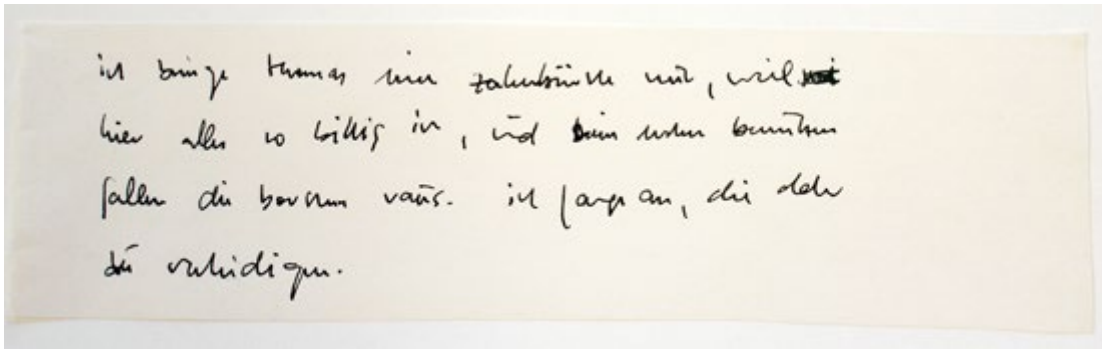 ich bringe thomas eine zahnbürste mit, weil
hier alles so billig ist, und beim ersten benützen
fallen die borsten raus. ich fange an, die ddr
zu verteidigen.